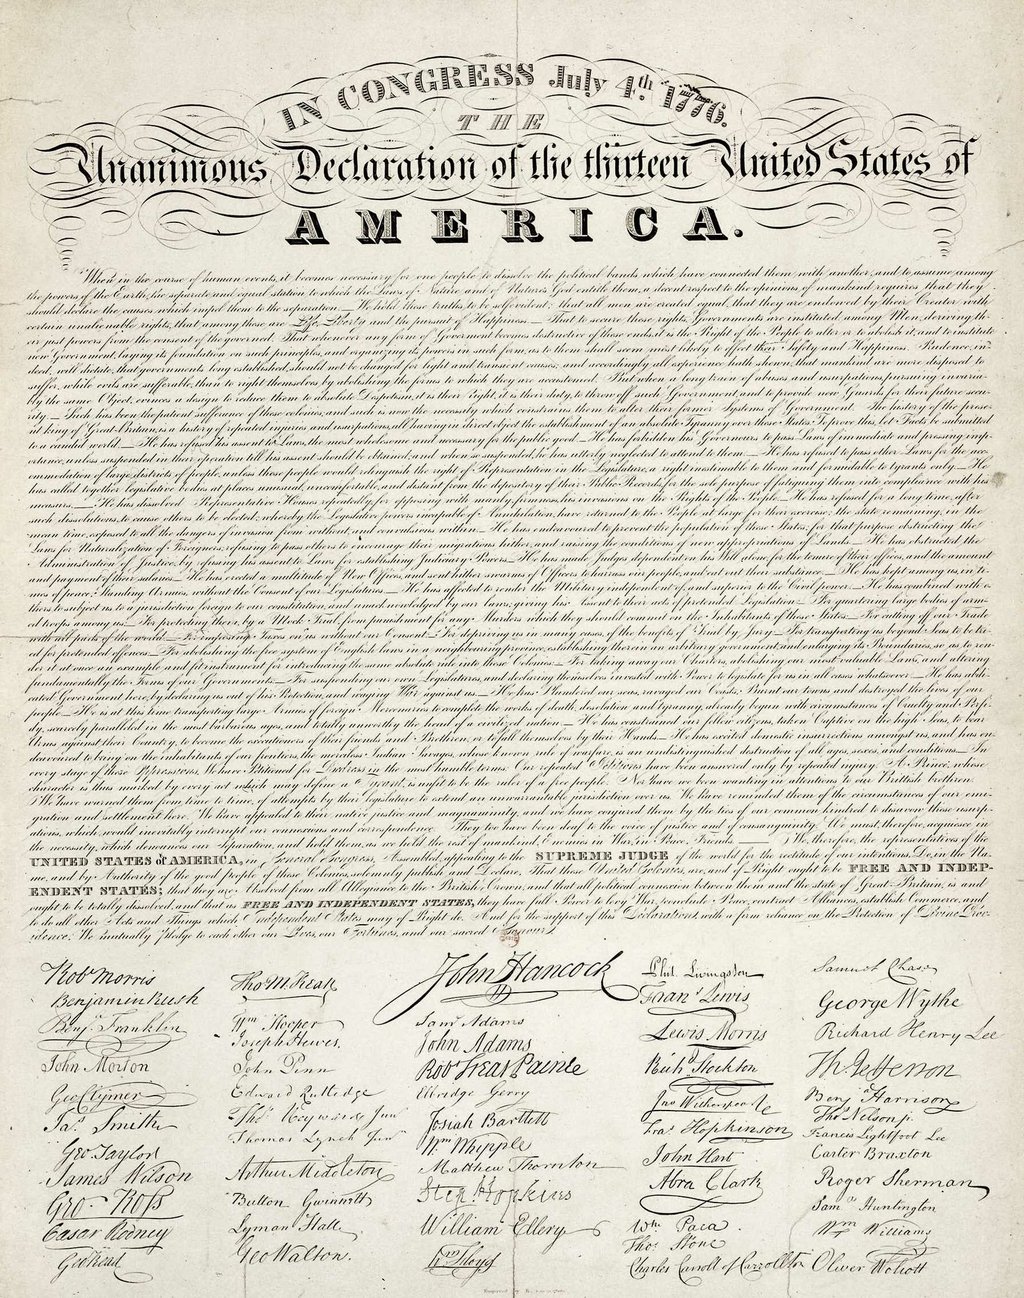 IN CONGRESS July 4th. 1776.
THE
Unanimous Declaration of the thirteen United States of
AMERICA.
When in the course of human events, it becomes necessary for one people to dissolve the political bands which have connected them with another, and to assume among
the powers of the Earth, the separate and equal station to which the Laws of Nature and of Nature's God entitle them, a decent respect to the opinions of mankind requires that they
should declare the causes which impel them to the separation.— We hold these truths, to be self evident; that all men are created equal, that they are endowed by their Creator with
certain unalienable rights, that among these are Life, Liberty and the pursuit of Happiness — That to secure these rights, Governments are instituted among Men, deriving th-
eir just powers from the consent of the governed. That whenever any form of Government becomes destructive of these ends, it is the Right of the People to alter or to abolish it; and to institute
new Government, laying its foundation on such principles, and organizing its powers in such form, as to them shall seem most likely to effect their Safety and Happiness. Prudence, in-
deed, will dictate, that governments long established, should not be changed for light and transient causes; and accordingly all experience hath shewn, that mankind are more disposed to
suffer, while evils are sufferable, than to right themselves by abolishing the forms to which they are accustomed. But when a long train of abuses and usurpations, pursuing invaria-
bly the same Object, evinces a design to reduce them to absolute Despotism, it is their Right, it is their duty, to throw off such Government, and to provide new Guards for their future secu-
rity — Such has been the patient sufferance of these colonies, and such is now the necessity which constrains them to alter their former Systems of Government. The history of the pres-
ent king of Great-Britain, is a history of repeated injuries and usurpations, all having in direct object the establishment of an absolute Tyranny over these States. To prove this, let Facts be submitted
to a candid world — He has refused his assent to Laws, the most wholesome and necessary for the public good — He has forbidden his Governours to pass Laws of immediate and pressing imp-
ortance, unless suspended in their operation till his assent should be obtained; and when so suspended, he has utterly neglected to attend to them — He has refused to pass other Laws for the acc-
ommodation of large districts of people, unless those people would relinquish the right of Representation in the Legislature, a right inestimable to them and formidable to tyrants only — He
has called together legislative bodies at places unusual, uncomfortable, and distant from the depository of their Public Records, for the sole purpose of fatiguing them into compliance with his
measures.— He has dissolved Representative Houses repeatedly, for opposing with manly firmness, his invasions on the Rights of the People — He has refused for a long time, after
such dissolutions, to cause others to be elected; whereby the Legislative powers incapable of Annihilation, have returned to the People at large for their exercise; the state remaining, in the
mean time, exposed to all the dangers of invasion from without, and convulsions within — He has endeavoured to prevent the population of these States; for that purpose obstructing the
Laws for Naturalization of Foreigners; refusing to pass others to encourage their migrations hither, and raising the conditions of new appropriations of Lands — He has obstructed the
Administration of Justice, by refusing his assent to Laws for establishing Judiciary Powers — He has made Judges dependent on his Will alone, for the tenure of their offices, and the amount
and payment of their salaries — He has erected a multitude of New Offices, and sent hither swarms of Officers to harrass our people, and eat out their substance — He has kept among us, in ti-
mes of peace, Standing Armies, without the Consent of our Legislatures — He has affected to render the Military independent of, and superior to the Civil power — He has combined with o-
thers to subject us to a jurisdiction foreign to our constitution, and unacknowledged by our laws; giving his Assent to their acts of pretended Legislation — For quartering large bodies of arm-
ed troops among us — For protecting them, by a Mock-Trial, from punishment for any Murders which they should commit on the Inhabitants of these States — For cutting off our Trade
with all parts of the world — For imposing Taxes on us without our Consent — For depriving us in many cases, of the benefits of Trial by Jury — For transporting us beyond Seas to be tri-
ed for pretended offences — For abolishing the free system of English laws in a neighbouring province, establishing therein an arbitrary government, and enlarging its Boundaries, so as to ren-
der it at once an example and fit instrument for introducing the same absolute rule into these Colonies — For taking away our Charters, abolishing our most valuable Laws, and altering
fundamentally the Forms of our Governments — For suspending our own Legislatures, and declaring themselves invested with Power to legislate for us in all cases whatsoever — He has abdi-
cated Government here, by declaring us out of his Protection, and waging War against us — He has Plundered our seas, ravaged our Coasts, Burnt our towns and destroyed the lives of our
people — He is at this time transporting large Armies of foreign Mercenaries to complete the works of death, desolation and tyranny, already begun with circumstances of Cruelty and Perfi-
dy, scarcely paralleled in the most barbarous ages, and totally unworthy the head of a civilized nation — He has constrained our fellow citizens, taken Captive on the high Seas, to bear
Arms against their Country, to become the executioners of their friends and Brethren, or to fall themselves by their Hands — He has excited domestic insurrections amongst us, and has en-
deavoured to bring on the inhabitants of our frontiers, the merciless Indian Savages, whose known rule of warfare, is an undistinguished destruction of all ages, sexes, and conditions — In
every stage of these Oppressions, We have Petitioned for Redress in the most humble terms: Our repeated Petitions have been answered only by repeated injury. A Prince, whose
character is thus marked by every act which may define a Tyrant, is unfit to be the ruler of a free people. Nor have we been wanting in attentions to our British brethren.
We have warned them from time to time, of attempts by their legislature to extend an unwarrantable jurisdiction over us. We have reminded them of the circumstances of our emi-
gration and settlement here. We have appealed to their native justice and magnanimity, and we have conjured them by the ties of our common kindred to disavow these usurp-
ations, which, would inevitably interrupt our connexions and correspondence. They too have been deaf to the voice of justice and of consanguinity. We must, therefore, acquiesce in
the necessity, which denounces our Separation, and hold them, as we hold the rest of mankind, Enemies in War, in Peace, Friends. — We, therefore, the representatives of the
UNITED STATES of AMERICA, in General Congress, Assembled, appealing to the SUPREME JUDGE of the world for the rectitude of our intentions, Do, in the Na-
me, and by Authority of the good people of these Colonies, solemnly publish and Declare, That these United Colonies, are, and of Right ought to be FREE AND INDEP-
ENDENT STATES; that they are Absolved from all Allegiance to the British Crown, and that all political connexion between them and the state of Great-Britain, is and
ought to be totally dissolved, and that as FREE AND INDEPENDENT STATES, they have full Power to levy War, conclude Peace, contract Alliances, establish Commerce, and
to do all other Acts and Things which Independent States may of Right do. And for the support of this Declaration, with a firm reliance on the Protection of Divine Prov-
idence, We mutually Pledge to each other our Lives, our Fortunes, and our sacred Honour.
Robt Morris
Benjamin Rush
Benja. Franklin
John Morton
Geo Clymer
Jas. Smith
Geo. Taylor
James Wilson
Geo. Ross
Caesar Rodney
Geo Read
Tho M:Kean
Wm Hooper
Joseph Hewes,
John Penn
Edward Rutledge
Thos. Heyward Junr
Thomas Lynch Junr
Arthur Middleton
Button Gwinnett
Lyman Hall
Geo Walton.
John Hancock
Saml Adams
John Adams
Robt Treat Paine
Elbridge Gerry
Josiah Bartlett
Wm Whipple
Matthew Thornton
Step. Hopkins
William Ellery
Wm Floyd
Phil. Livingston
Frans. Lewis
Lewis Morris
Richd. Stockton
Jno Witherspoon
Fras. Hopkinson
John Hart
Abra Clark
Wm Paca
Thos. Stone
Charles Carroll of Carrollton
Samuel Chase
George Wythe
Richard Henry Lee
Th. Jefferson
Benja Harrison
Thos. Nelson jr.
Francis Lightfoot Lee
Carter Braxton
Roger Sherman
Saml Huntington
Wm Williams
Oliver Wolcott